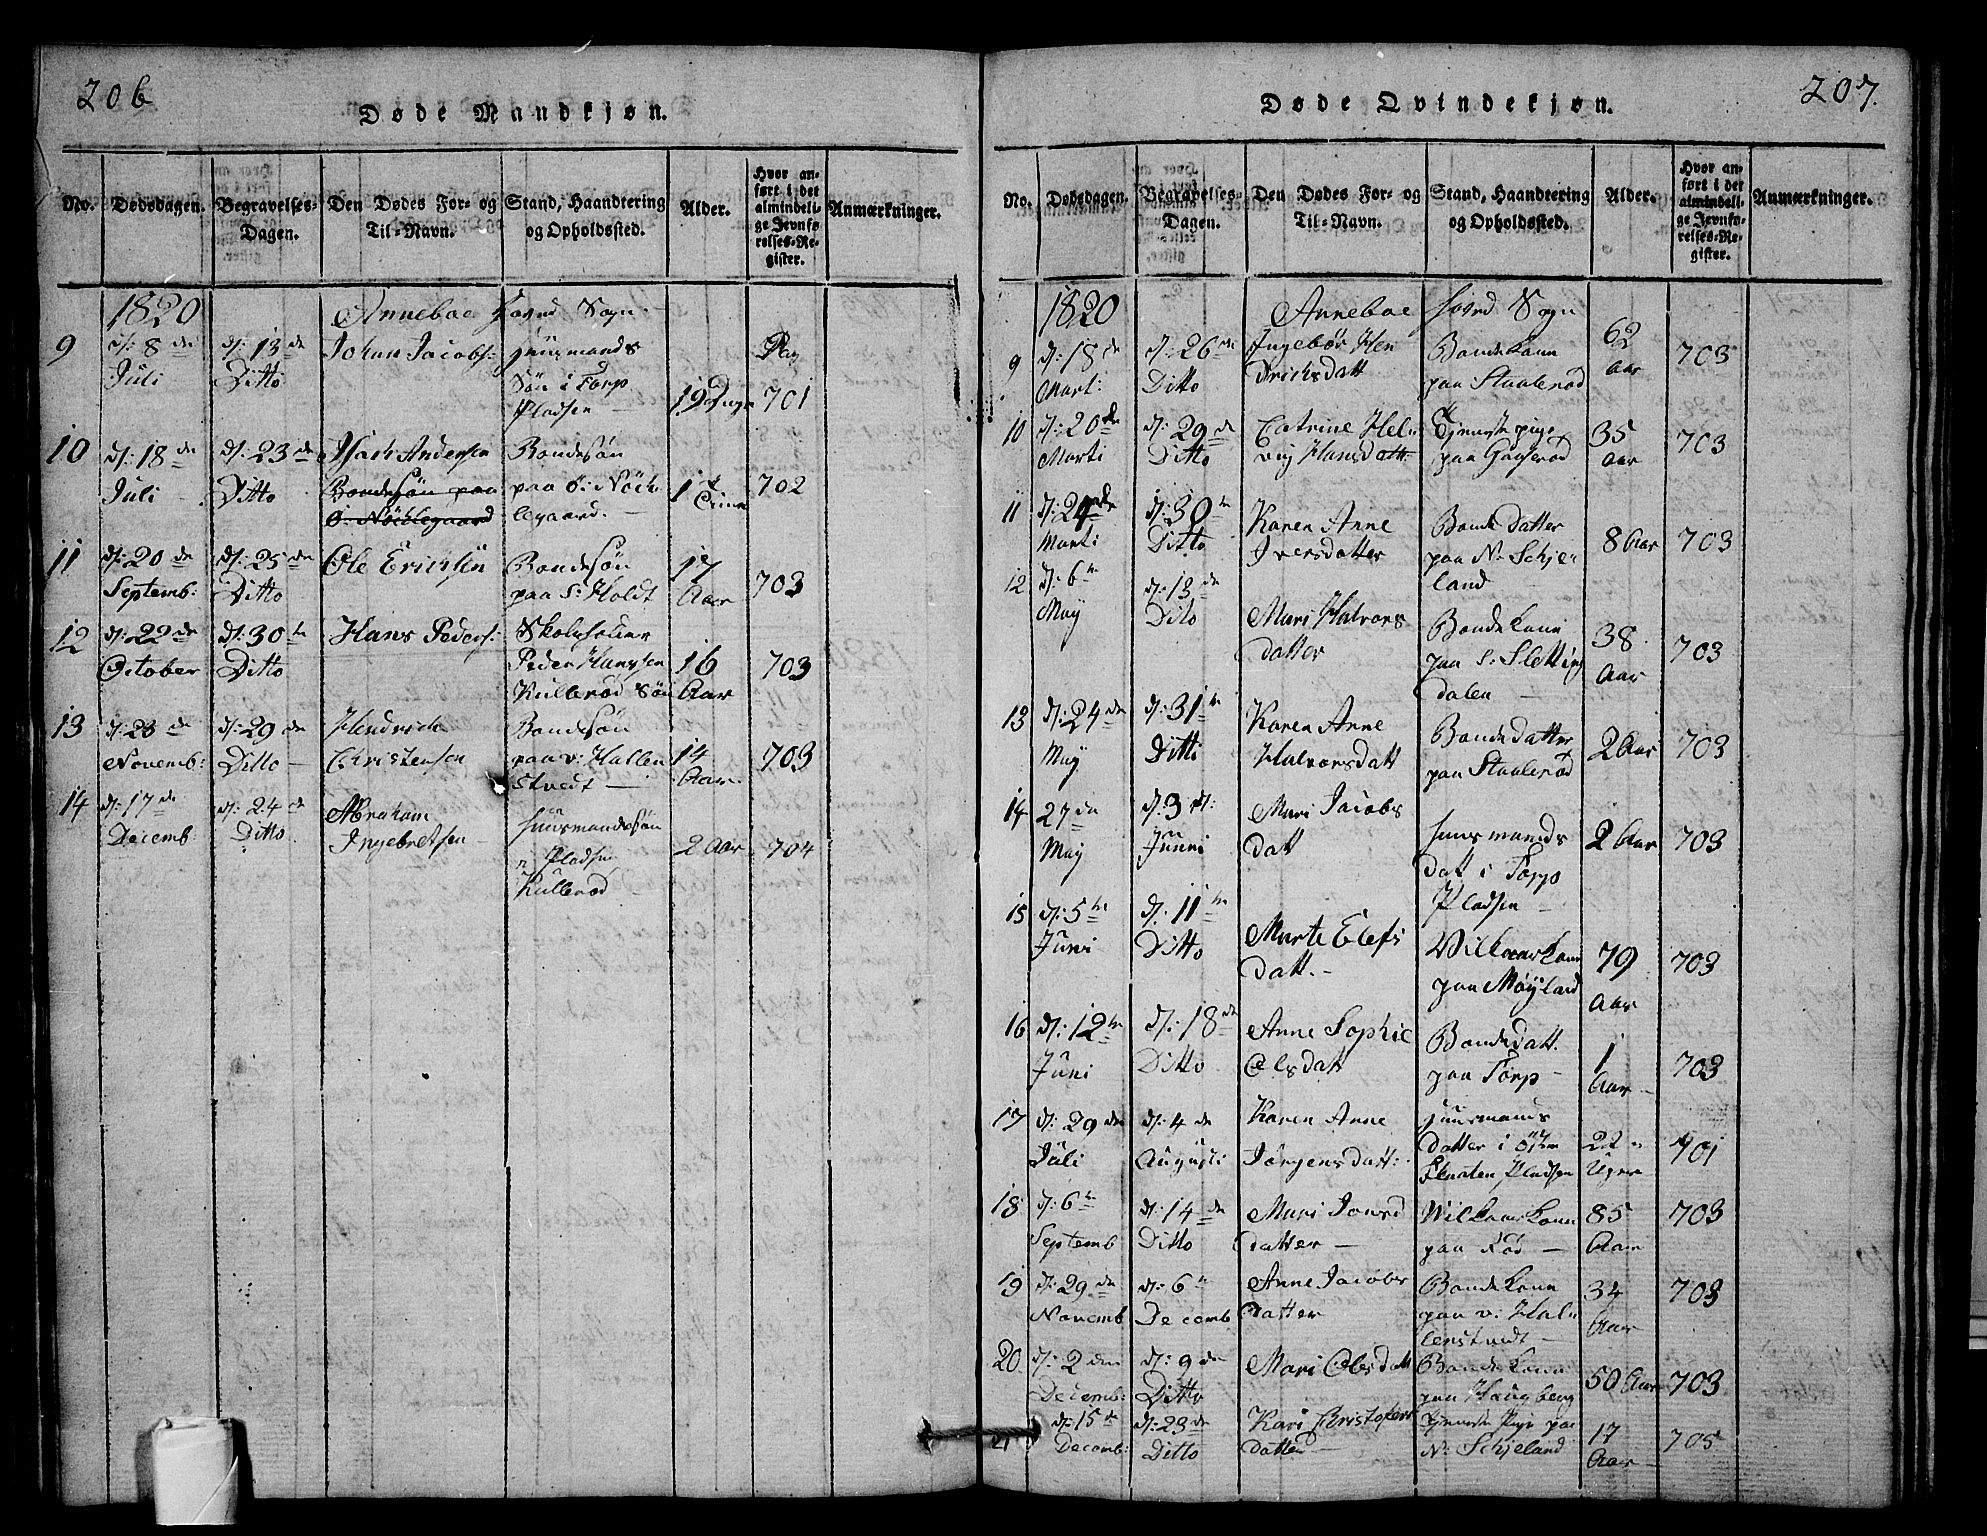 206
Døde Mandkjøn.
No. Dødsdagen. Begravelses-Dagen. Den Dødes For- og Til-Navn. Stand, Haandtering og Opholdssted. Alder. Hvor anført i det almindelige Jevnførelses-Register. Anmærkninger.
1820 Anneboe Sogn
9 d: 8de Juli d: 13de Ditto Johan Jacobs: Huusmands Søn i Torp Pladsen 19 Dage Pag 701
10 d: 18de Juli d: 23de Ditto Isach Andersen Bondesøn paa Ø: Nöch legaard 702
Bondesön paa Ø: Nöchlegaard
11 d: 20de Septemb: d: 25de Ditto Ole Erichsen Bondesøn paa S: Holdt 17 Aar 703
12 d: 22de October d: 30te Ditto Hans Peders: Skoleholder Peder Hansen Kullerød Søn 16 Aar 703
13 d: 23de Novemb: d: 29de Ditto Hendrich Christensen Bondesøn paa v: Hallen stvedt 14 Aar 703
14 d: 17de Decemb: d: 24de Ditto Abraham Ingebretsen Huusmandssøn Pladsen Kullerød 2 Aar 704
207.
Døde Qvindekjøn.
No. Dødsdagen. Begravelses-Dagen. Den Dødes For- og Til-Navn. Stand, Haandtering og Opholdssted. Alder. Hvor anført i det almindelige Jevnførelses-Register. Anmærkninger.
1820 Anneboe Hoved Sogn
9 d: 18de Marti: d: 26de Ditto Ingebör Hen drichsdatt Bondekone paa Staalerød 62 Aar 703
10 d: 20de Marti d: 29de Ditto Catrine Hel vig Hansdatt Tjenestepige paa 35 Aar 703
11 d: 24de Marti d: 30te Ditto Karen Anne Iversdatter Bonde Datter paa N: Schje land 8 Aar 703
12 d: 6te May d: 13de Dito Mari Halvors datter Bondekone paa S: Sletting dalen 38 Aar 703
13 d: 24de May d: 31te Ditti Karen Anne Halvorsdatt Bondedatter paa Staalerød 2 Aar 703
14 27de May d: 3d: Junni Mari Jacobs datt Huusmands datt i Torp Pladsen 2 Aar 703
15 d: 5te Juni d: 11te Ditto Marte Elefs datt. Vilkaarskone paa Møyland 79 Aar 703
16 d: 12te Juni d: 18de Ditto Anne Sophie Olsdatt Bondedatt. paa Torp 1 Aar 703
17 d: 29de Juli d: 4de Augusti Karen Anne Jörgensdatt: Huusmands datter i Pladsen 22 Uger 701
18 d: 6te Septemb d: 14de Ditto Mari Jonsd datter Wilkaarskone paa Rød 85 Aar 703
19 d: 29de Novemb d: 6te Decemb Anne Jacobs datter Bondekone paa v: Hal lenstvedt 34 Aar 703
20 d: 2den Decemb: d: 9de Ditto Mari Olsdatt Bondekone paa Haugberg 50 Aar 703
21 d: 15de Decemb: d: 23de Ditto Kari Christofers datter Tjeneste Pige paa N: Schjeland 17 Aar 705